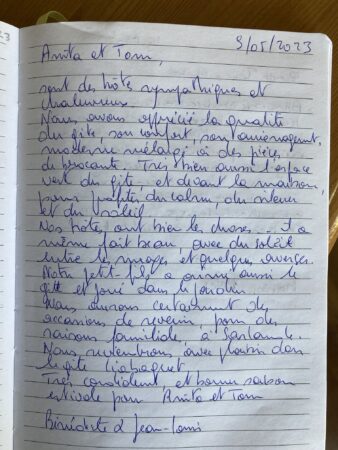 23
9/05/2023
Anita et Tom,
sont des hôtes sympathiques et
chaleureux.
Nous avons apprécié la qualité
du gîte, son confort, son aménagement,
moderne mélangé à des pièces
de brocante. Très bien aussi l'espace
vert du gîte, et devant la maison,
pour profiter du calme, du silence
et du soleil.
Nos hôtes, ont bien les choses... il a
même fait beau, avec du soleil
entre les nuages, et quelques averses.
Notre petit-fils a aimé aussi le
gîte et joué dans le jardin.
Nous aurons certainement des
occasions de revenir, pour des
raisons familiales, à
Nous reviendrons, avec plaisir dans
le gîte
Très cordialement, et bonne saison
estivale pour Anita et Tom
Bénédicte & Jean-Louis